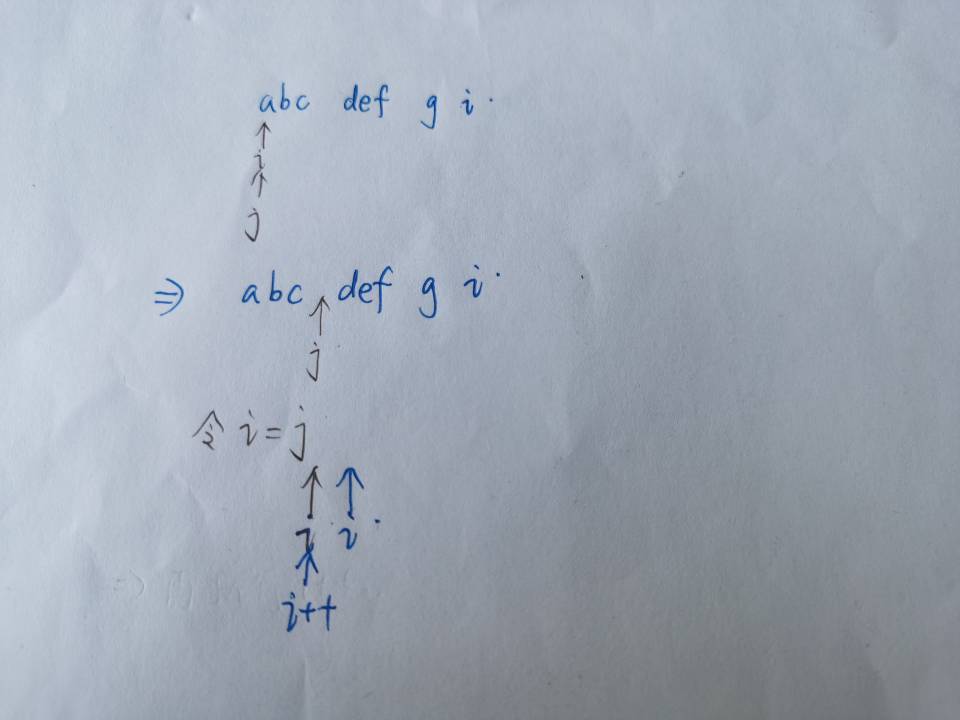 abc def g i.
i
j
⇒ abc def g i.
j
令 i = j
i i.
i++